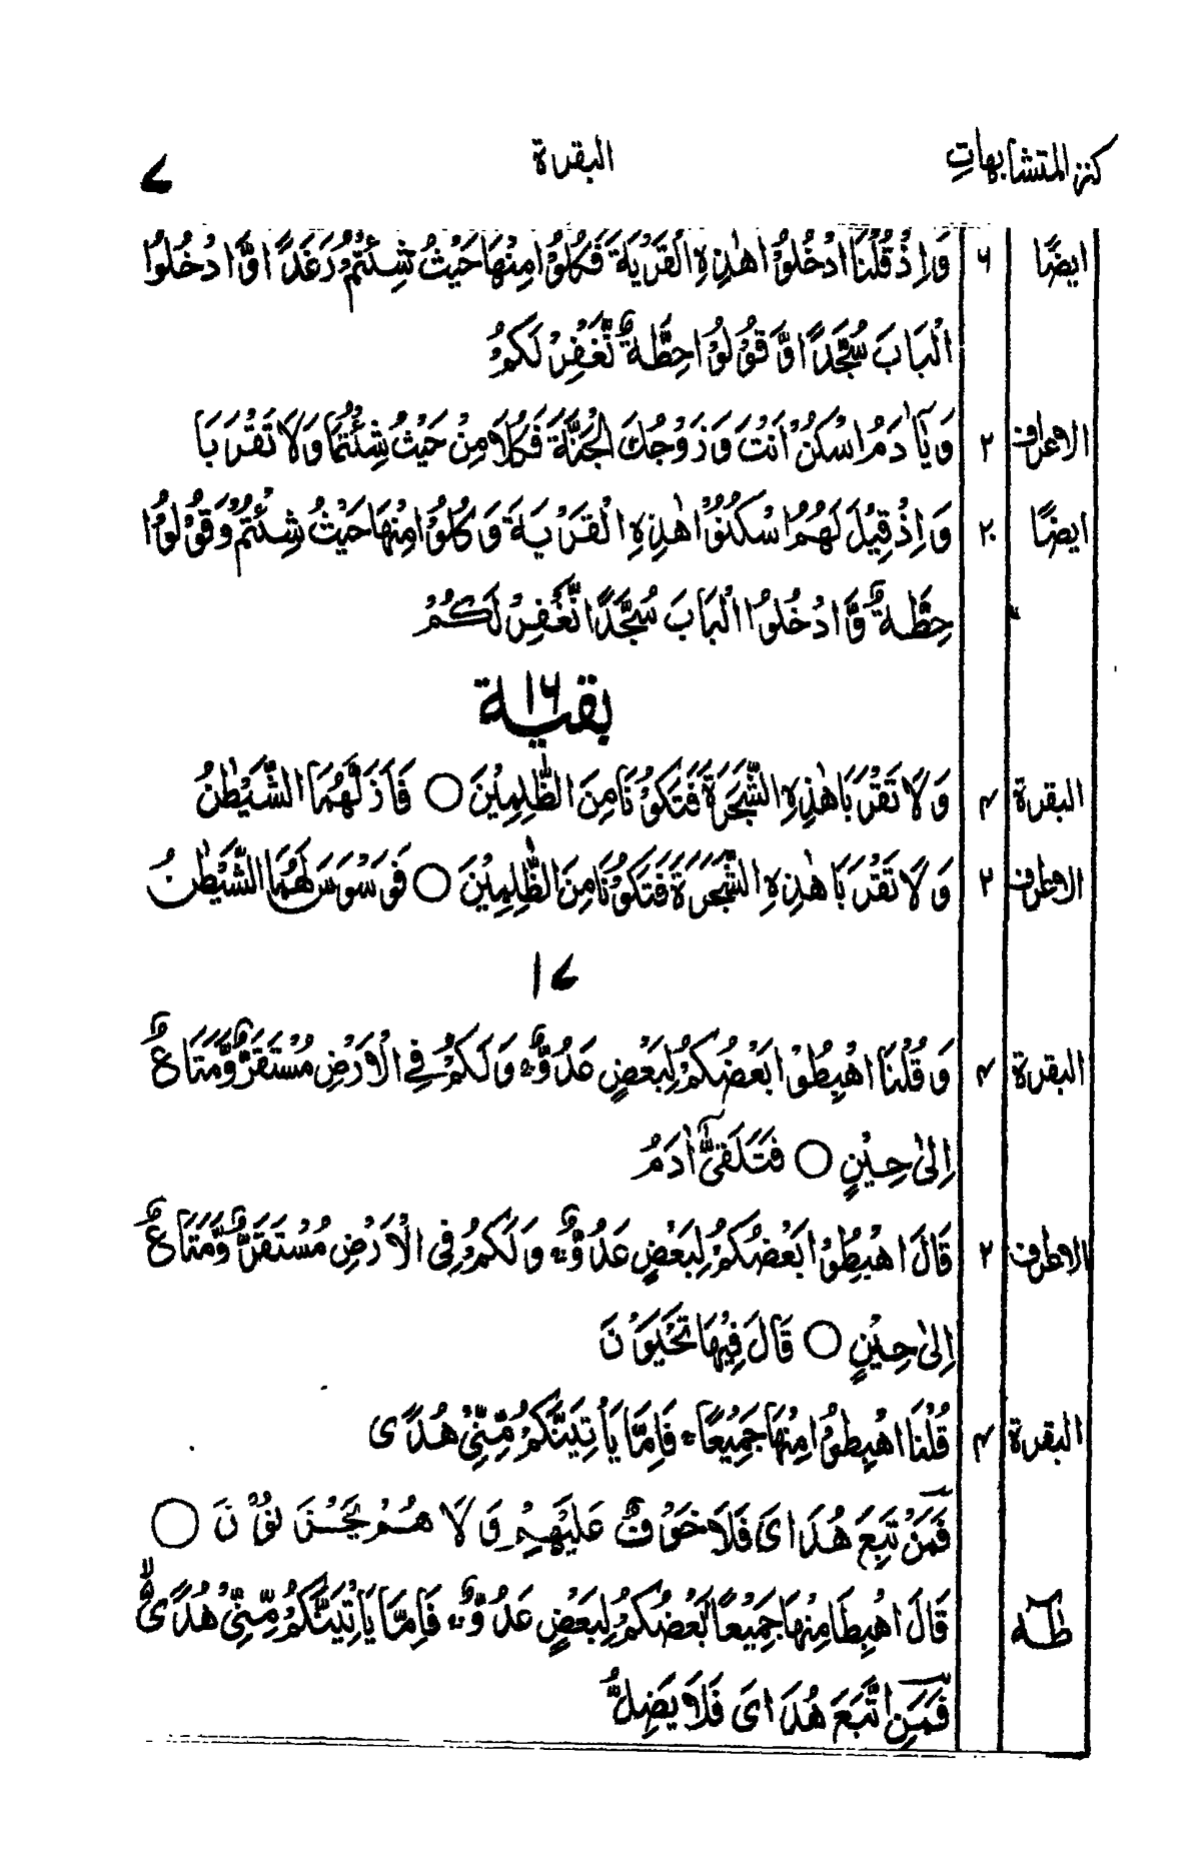 كنز المتشابهاتِ البقرة ٧
ايضًا ٦ وَاِذْ قُلْنَا ادْخُلُوْا هٰذِهِ الْقَرْيَةَ فَكُلُوْا مِنْهَا حَيْثُ شِئْتُمْ رَغَدًا اوَّادْخُلُوا
الْبَابَ سُجَّدًا اوَّقُوْلُوْا حِطَّةٌ نَّغْفِرْ لَكُمْ
الاعراف ٢ وَيٰٓاٰدَمُ اسْكُنْ اَنْتَ وَزَوْجُكَ الْجَنَّةَ فَكُلَا مِنْ حَيْثُ شِئْتُمَا وَلَا تَقْرَبَا
ايضًا ٢٠ وَاِذْ قِيْلَ لَهُمُ اسْكُنُوْا هٰذِهِ الْقَرْيَةَ وَكُلُوْا مِنْهَا حَيْثُ شِئْتُمْ وَقُوْلُوْا
حِطَّةٌ وَّادْخُلُوا الْبَابَ سُجَّدًا نَّغْفِرْ لَكُمْ
بقية ١٦
البقرة ٤ وَلَا تَقْرَبَا هٰذِهِ الشَّجَرَةَ فَتَكُوْنَا مِنَ الظّٰلِمِيْنَ ○ فَاَزَلَّهُمَا الشَّيْطٰنُ
الاعراف ٢ وَلَا تَقْرَبَا هٰذِهِ الشَّجَرَةَ فَتَكُوْنَا مِنَ الظّٰلِمِيْنَ ○ فَوَسْوَسَ لَهُمَا الشَّيْطٰنُ
١٧
البقرة ٤ وَقُلْنَا اهْبِطُوْا بَعْضُكُمْ لِبَعْضٍ عَدُوٌّ ۚ وَلَكُمْ فِي الْاَرْضِ مُسْتَقَرٌّ وَّمَتَاعٌ
اِلٰى حِيْنٍ ○ فَتَلَقّٰٓى اٰدَمُ
الاعراف ٢ قَالَ اهْبِطُوْا بَعْضُكُمْ لِبَعْضٍ عَدُوٌّ ۚ وَلَكُمْ فِى الْاَرْضِ مُسْتَقَرٌّ وَّمَتَاعٌ
اِلٰى حِيْنٍ ○ قَالَ فِيْهَا تَحْيَوْنَ
البقرة ٤ قُلْنَا اهْبِطُوْا مِنْهَا جَمِيْعًا ۚ فَاِمَّا يَأْتِيَنَّكُمْ مِّنِّيْ هُدًى
فَمَنْ تَبِعَ هُدَاىَ فَلَا خَوْفٌ عَلَيْهِمْ وَلَا هُمْ يَحْزَنُوْنَ ○
طٰهٰ قَالَ اهْبِطَا مِنْهَا جَمِيْعًا بَعْضُكُمْ لِبَعْضٍ عَدُوٌّ ۚ فَاِمَّا يَاْتِيَنَّكُمْ مِّنِّيْ هُدًى
فَمَنِ اتَّبَعَ هُدَاىَ فَلَا يَضِلُّ